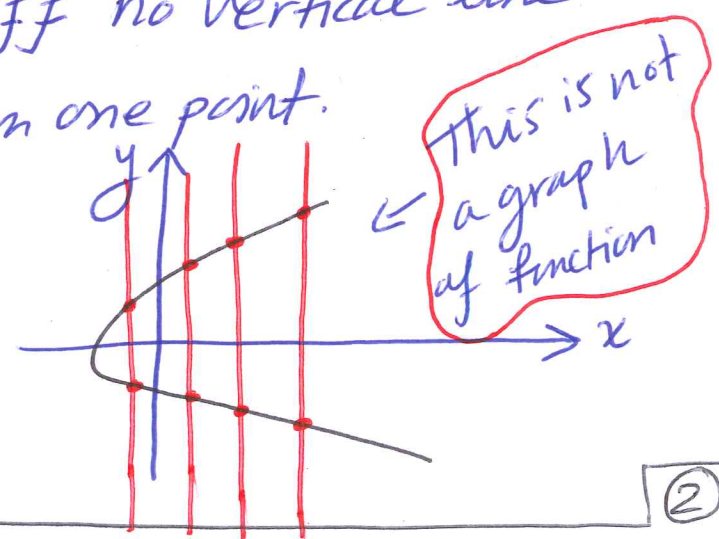 ff no vertical line
n one point.
y
This is not
a graph
of function
x
2